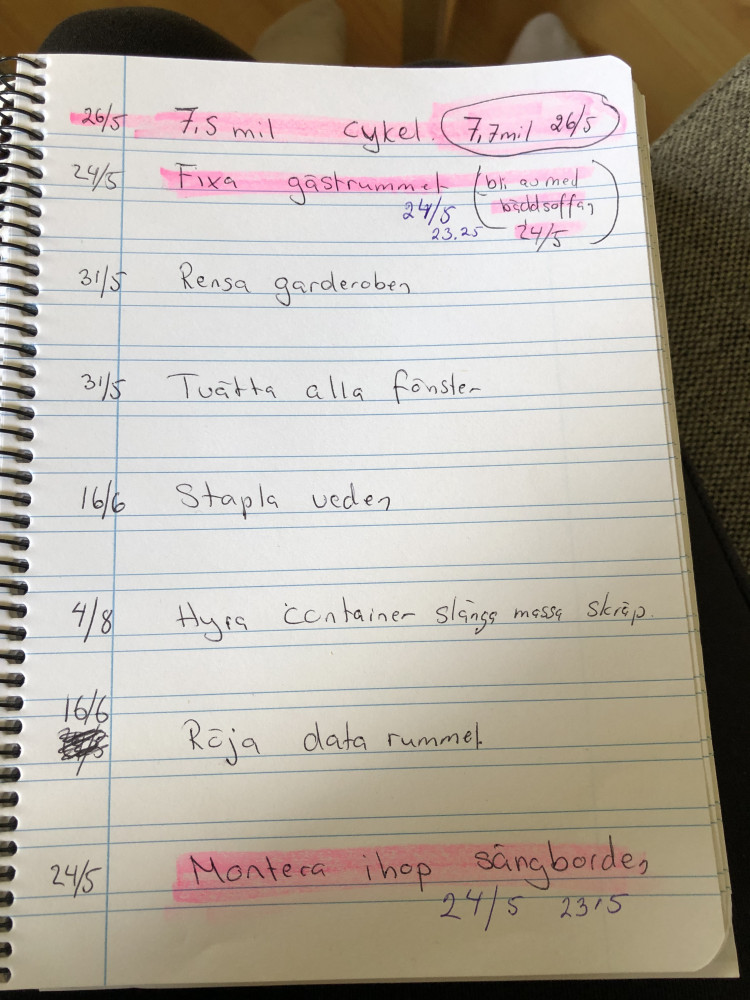 26/5 7,5 mil cykel. 7,7mil 26/5
24/5 Fixa gästrummet (bli av med
bäddsoffan
24/5 24/5)
23.25
31/5 Rensa garderoben
31/5 Tvätta alla fönster
16/6 Stapla veden
4/8 Hyra container slänga massa skräp.
16/6
Röja data rummet
24/5 Montera ihop sängborden
24/5 23:15